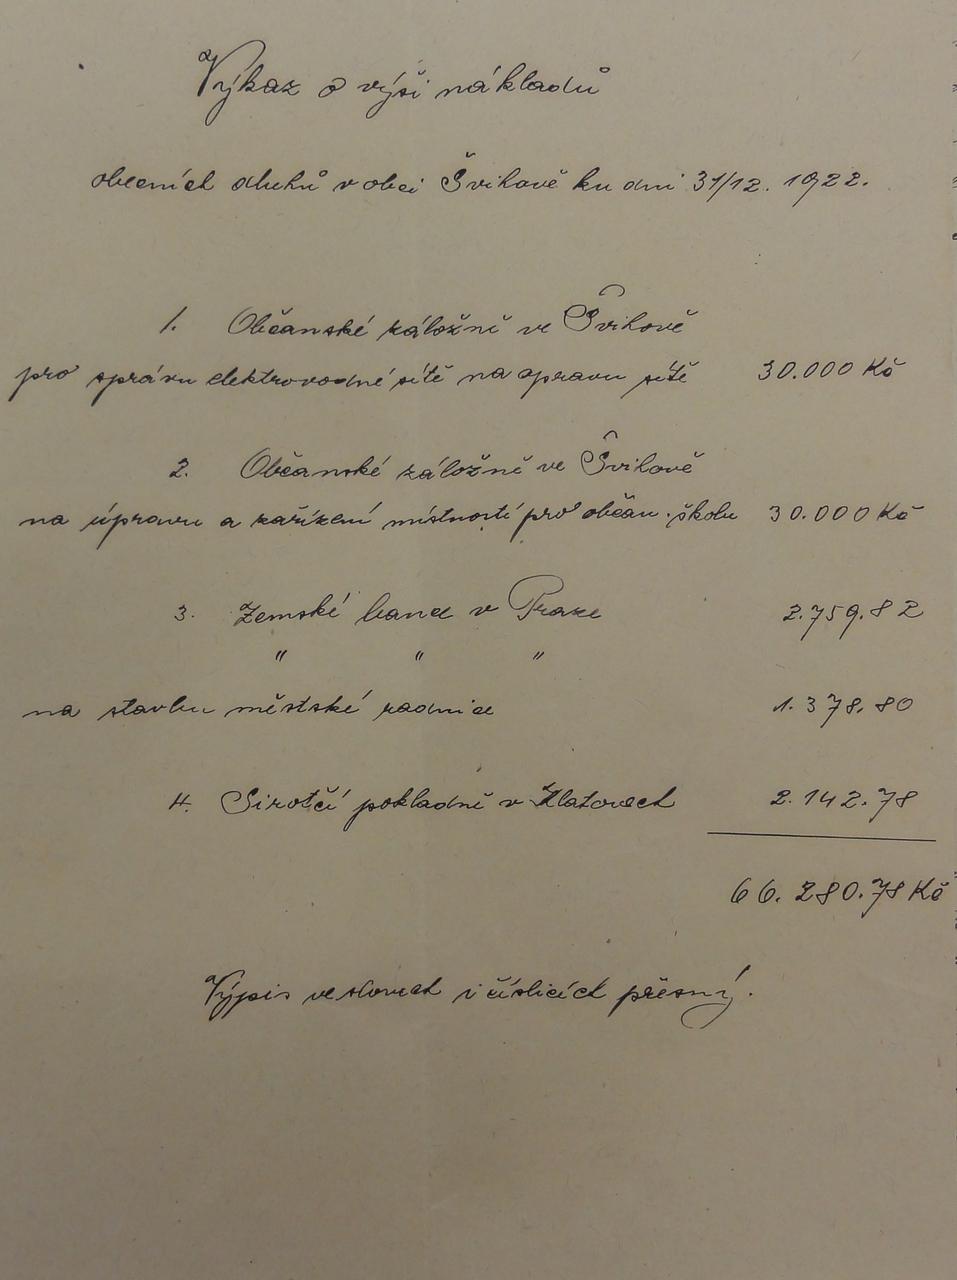 Výkaz o výši nákladů
obecních dluhů v obci Švihově ku dni 31/12. 1922.
1. Občanské záložně ve Švihově
pro správu elektrovodné sítě na opravu sítě 30.000 Kč
2. Občanské záložně ve Švihově
na úpravu a zařízení místností pro občan. školu 30.000 Kč
3. Zemské bance v Praze 2.759.82
" " "
na stavbu městské radnice 1.378.80
4. Sirotčí pokladně v Klatovech 2.142.78
66.280.78 Kč
Výpis ve slovech i číslicích přesný.